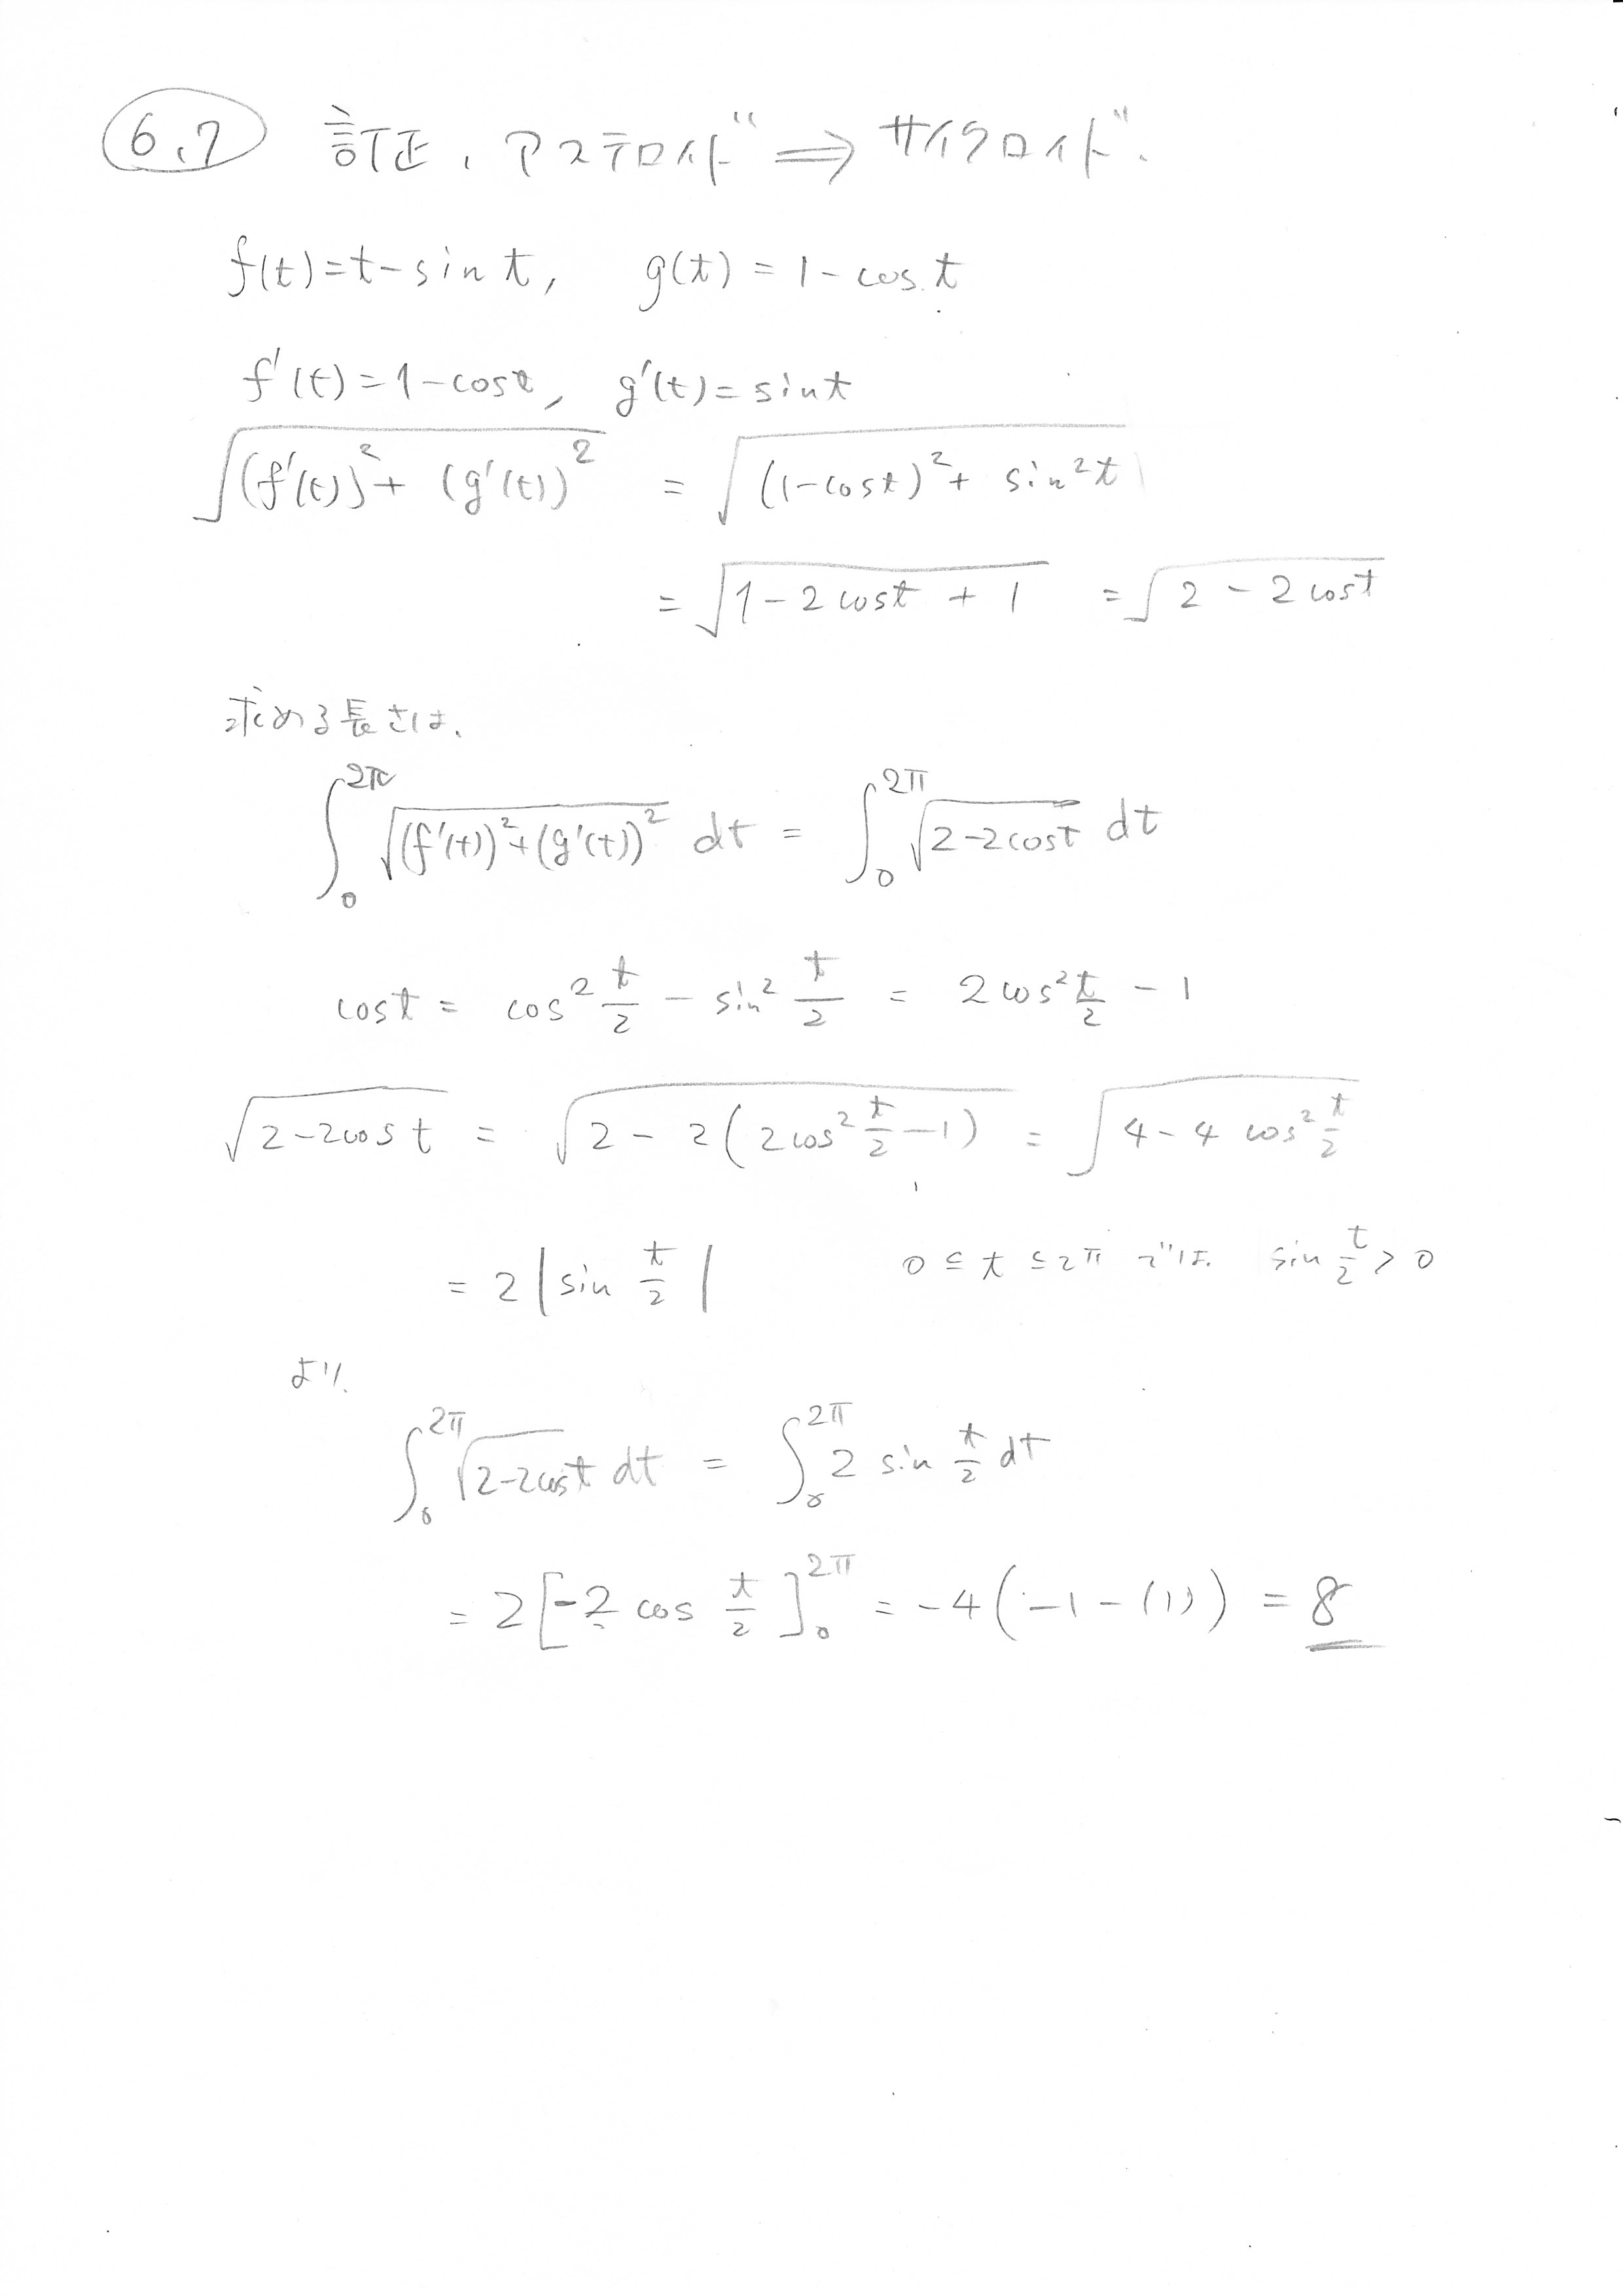 6.7 訂正、アステロイド ⇒ サイクロイド.
f(t)=t-sin t, g(t)=1-cos t
f'(t)=1-cost, g'(t)=sint
√((f'(t))²+(g'(t))²) = √((1-cost)²+sin²t)
=√(1-2cost+1) =√(2-2cost)
求める長さは、
∫₀^2π √((f'(t))²+(g'(t))²) dt = ∫₀^2π √(2-2cost) dt
cost = cos² t/2 - sin² t/2 = 2cos² t/2 - 1
√(2-2cost) = √(2-2(2cos² t/2 -1)) = √(4-4cos² t/2)
= 2|sin t/2| 0≦t≦2π では、 sin t/2 > 0
より、
∫₀^2π √(2-2cost) dt = ∫₀^2π 2 sin t/2 dt
= 2[-2 cos t/2]₀^2π = -4(-1-(1)) = 8